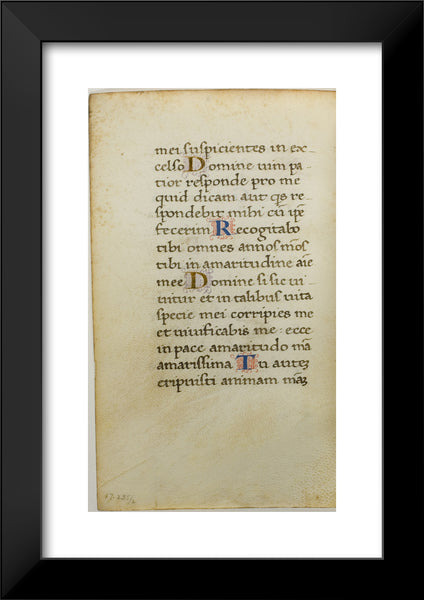 mei suspicientes in ex-
celso Domine uim pa-
tior responde pro me
quid dicam aut q̄s re-
spondebit mihi cū ip̄e
fecerim Recogitabo
tibi omnes annos mōs
tibi in amaritudine aīe
mee Domine si sic ui-
uitur et in talibus uita
specie mei corripies me
et uiuificabis me: ecce
in pace amaritudo mā
amarissima Tu autez
eripuisti animam māz